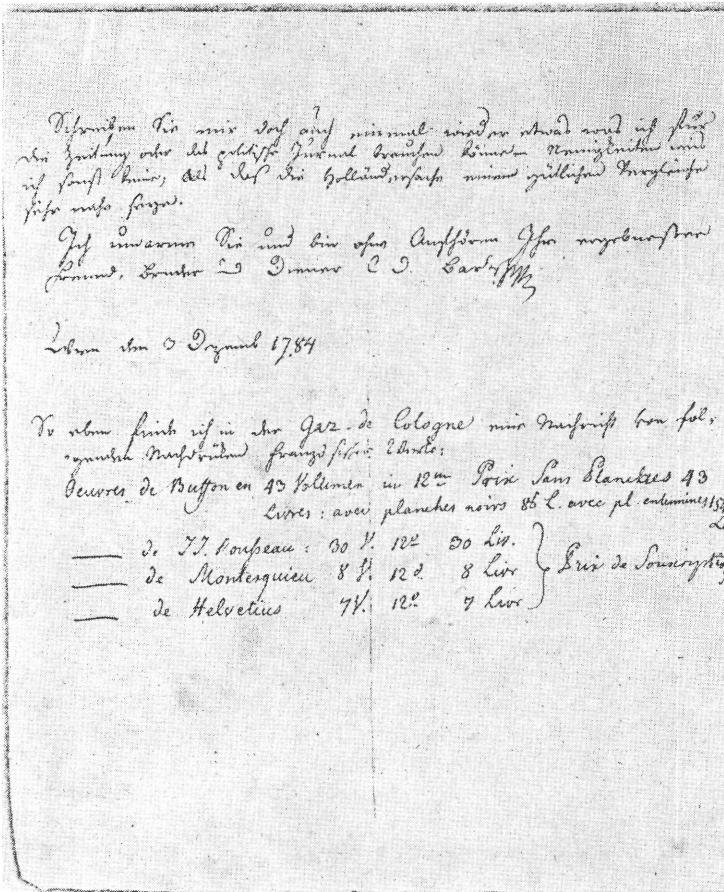 Schreiben Sie mir doch auch einmal wieder etwas was ich für
die Zeitung oder das politische Jurnal brauchen könne. Neuigkeiten weis
ich sonst keine, als daß die Holländersache einem gütlichen Vergleiche
sehr nahe seye.
Ich umarme Sie und bin ohne Aufhören Ihr ergebenster
Freund, Bruder und Diener C. D. Bartsch
Wien den 3 Dezemb 1784
So eben finde ich in der Gaz. de Cologne eine Nachricht von fol-
genden Nachdrüken französischer Werke:
Oeuvres de Buffon en 43 Volumen in 12mo Prix Sans Planches 43
Livres: avec planches noirs 86 L. avec pl. enluminees 154
de J J. Rousseau: 30 V. 12o 30 Liv.
de Montesquieu 8 V. 12o. 8 Livr
de Helvetius 7 V. 12o 7 Livr
Prix de Souscription